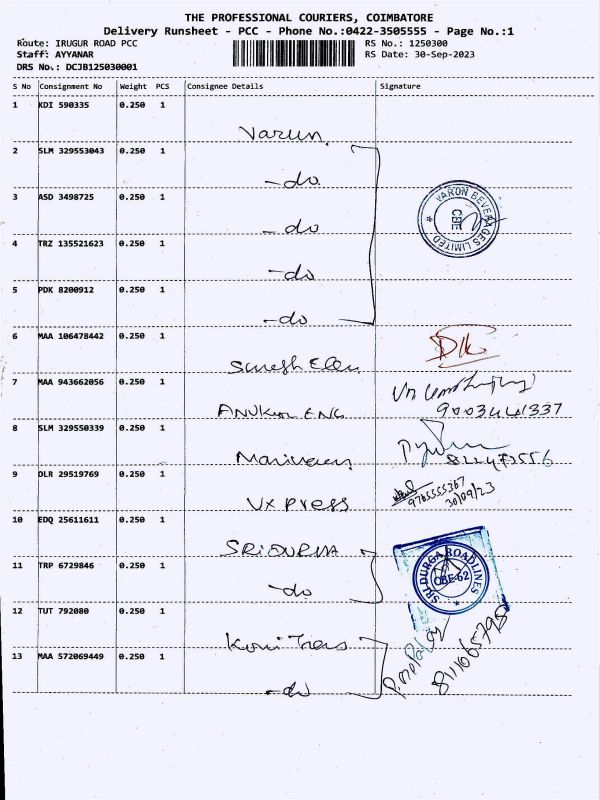 THE PROFESSIONAL COURIERS, COIMBATORE
Delivery Runsheet - PCC - Phone No.:0422-3505555 - Page No.:1
Route: IRUGUR ROAD PCC
RS No.: 1250300
Staff: AYYANAR
RS Date: 30-Sep-2023
DRS No.: DCJB125030001
S No Consignment No Weight PCS Consignee Details Signature
1 KDI 590335 0.250 1
Varun.
2 SLM 329553043 0.250 1
-do.
3 ASD 3498725 0.250 1
-do
VARON BEVERAGES LIMITED
CBE
4 TRZ 135521623 0.250 1
-do
5 PDK 8200912 0.250 1
-do
6 MAA 106478442 0.250 1
Suresh
7 MAA 943662056 0.250 1
ANUKOOL ENG
8 SLM 329550339 0.250 1
9 DLR 29519769 0.250 1
VXPRESS
30/09/23
10 EDQ 25611611 0.250 1
SRIDURGA
11 TRP 6729846 0.250 1
-do
SRI DURGA ROADLINES
CBE-62
12 TUT 792080 0.250 1
13 MAA 572069449 0.250 1
-do